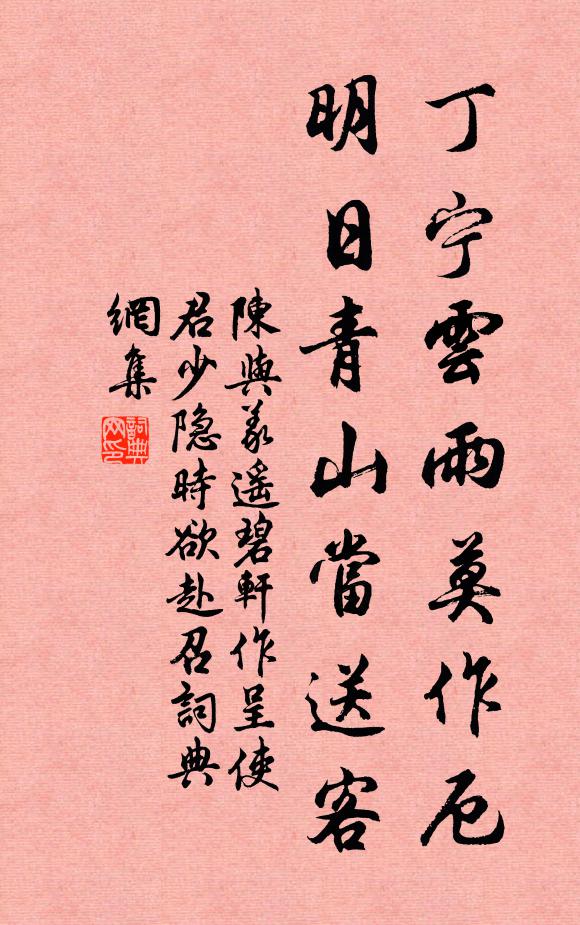 丁宁雲雨莫作厄
明日青山當送客
陳與義遥碧軒作呈使
君少隐時欲赴召詞典
網集
詞典
网印